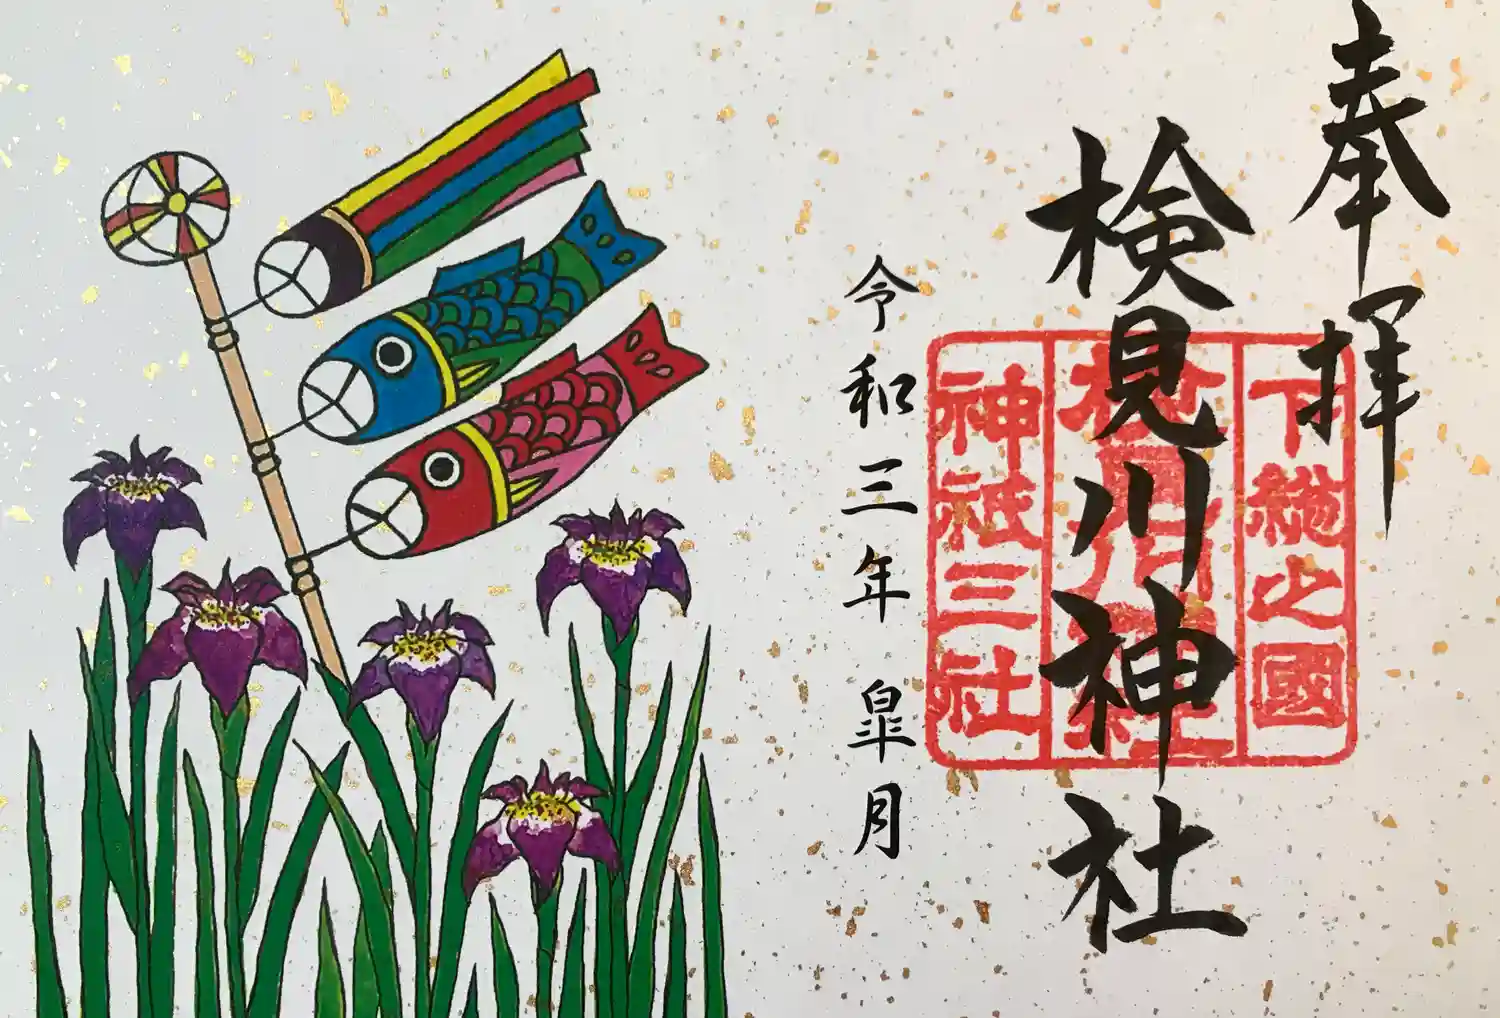 奉拝
検見川神社
下総之國
検見川神社
神祇三社
令和三年皐月